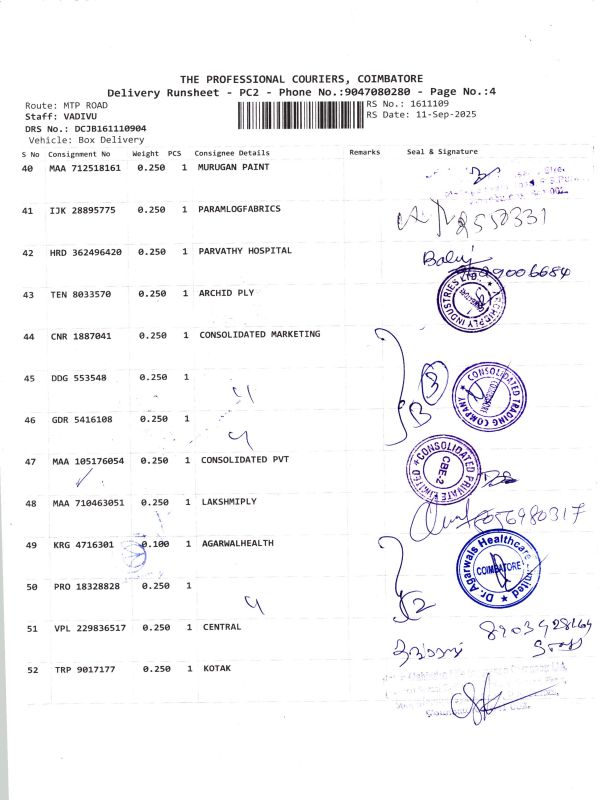 THE PROFESSIONAL COURIERS, COIMBATORE
Delivery Runsheet - PC2 - Phone No.:9047080280 - Page No.:4
Route: MTP ROAD
RS No.: 1611109
Staff: VADIVU
RS Date: 11-Sep-2025
DRS No.: DCJB161110904
Vehicle: Box Delivery
S No Consignment No Weight PCS Consignee Details Remarks Seal & Signature
40 MAA 712518161 0.250 1 MURUGAN PAINT
41 IJK 28895775 0.250 1 PARAMLOGFABRICS
42 HRD 362496420 0.250 1 PARVATHY HOSPITAL
Baluj
43 TEN 8033570 0.250 1 ARCHID PLY
ARCHIDPLY INDUSTRIES LTD
44 CNR 1887041 0.250 1 CONSOLIDATED MARKETING
45 DDG 553548 0.250 1
3
CONSOLIDATED TRADING COMPANY
COIMBATORE
46 GDR 5416108 0.250 1
47 MAA 105176054 0.250 1 CONSOLIDATED PVT
CONSOLIDATED PRIVATE LIMITED
CBE-2
48 MAA 710463051 0.250 1 LAKSHMIPLY
49 KRG 4716301 0.100 1 AGARWALHEALTH
Dr. Agarwals Healthcare Limited
COIMBATORE
50 PRO 18328828 0.250 1
2
51 VPL 229836517 0.250 1 CENTRAL
52 TRP 9017177 0.250 1 KOTAK